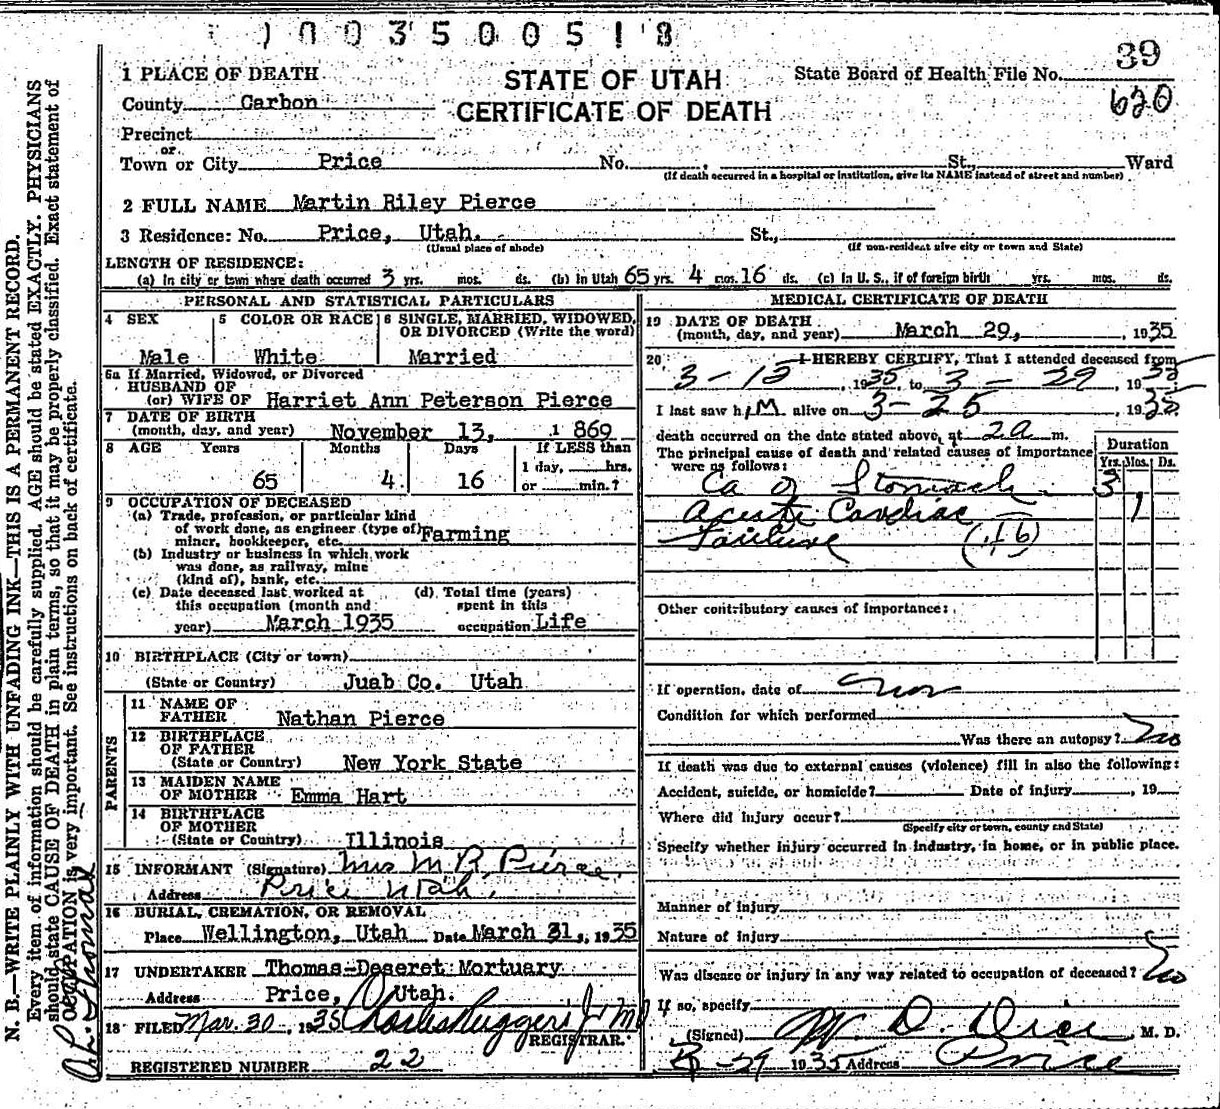 0 0 3 5 0 0 5 1 8
39
STATE OF UTAH
CERTIFICATE OF DEATH
State Board of Health File No.
620
1 PLACE OF DEATH
County Carbon
Precinct
or
Town or City Price No. St., Ward
(If death occurred in a hospital or institution, give its NAME instead of street and number)
2 FULL NAME Martin Riley Pierce
3 Residence: No. Price, Utah. St.,
(Usual place of abode) (If non-resident give city or town and State)
LENGTH OF RESIDENCE:
(a) In city or town where death occurred 3 yrs. mos. ds. (b) In Utah 65 yrs. 4 mos. 16 ds. (c) In U. S., if of foreign birth yrs. mos. ds.
PERSONAL AND STATISTICAL PARTICULARS
4 SEX
Male
5 COLOR OR RACE
White
6 SINGLE, MARRIED, WIDOWED, OR DIVORCED (Write the word)
Married
6a If Married, Widowed, or Divorced
HUSBAND OF
(or) WIFE OF Harriet Ann Peterson Pierce
7 DATE OF BIRTH
(month, day, and year) November 13, 1869
8 AGE Years Months Days If LESS than
1 day, hrs.
65 4 16 or min.?
9 OCCUPATION OF DECEASED
(a) Trade, profession, or particular kind
of work done, as engineer (type of)
miner, bookkeeper, etc. Farming
(b) Industry or business in which work
was done, as railway, mine
(kind of), bank, etc.
(c) Date deceased last worked at
this occupation (month and
year) March 1935
(d) Total time (years)
spent in this
occupation Life
10 BIRTHPLACE (City or town)
(State or Country) Juab Co. Utah
PARENTS
11 NAME OF
FATHER Nathan Pierce
12 BIRTHPLACE
OF FATHER
(State or Country) New York State
13 MAIDEN NAME
OF MOTHER Emma Hart
14 BIRTHPLACE
OF MOTHER
(State or Country) Illinois
15 INFORMANT (Signature) Mrs M. R. Pierce.
Address Price Utah.
16 BURIAL, CREMATION, OR REMOVAL
Place Wellington, Utah Date March 31, 1935
17 UNDERTAKER Thomas-Deseret Mortuary
Address Price, Utah.
18 FILED Mar. 30, 1935 Charles Ruggeri Jr MD
REGISTRAR.
REGISTERED NUMBER 22
MEDICAL CERTIFICATE OF DEATH
19 DATE OF DEATH
(month, day, and year) March 29, 1935
20 I HEREBY CERTIFY, That I attended deceased from
3-12, 1935, to 3-29, 1935
I last saw him alive on 3-25, 1935
death occurred on the date stated above, at 2a m.
The principal cause of death and related causes of importance
were as follows:
Duration
Yrs. Mos. Ds.
Ca of Stomach 3
Acute Cardiac 1
Failure (46)
Other contributory causes of importance:
If operation, date of
Condition for which performed
Was there an autopsy? No
If death was due to external causes (violence) fill in also the following:
Accident, suicide, or homicide? Date of injury, 19
Where did injury occur?
(Specify city or town, county and State)
Specify whether injury occurred in industry, in home, or in public place.
Manner of injury
Nature of injury
Was disease or injury in any way related to occupation of deceased? No
If so, specify
(Signed) M. D.
3-29 1935 Address Price
N. B.—WRITE PLAINLY WITH UNFADING INK—THIS IS A PERMANENT RECORD.
Every item of information should be carefully supplied. AGE should be stated EXACTLY. PHYSICIANS
should state CAUSE OF DEATH in plain terms, so that it may be properly classified. Exact statement of
OCCUPATION is very important. See instructions on back of certificate.